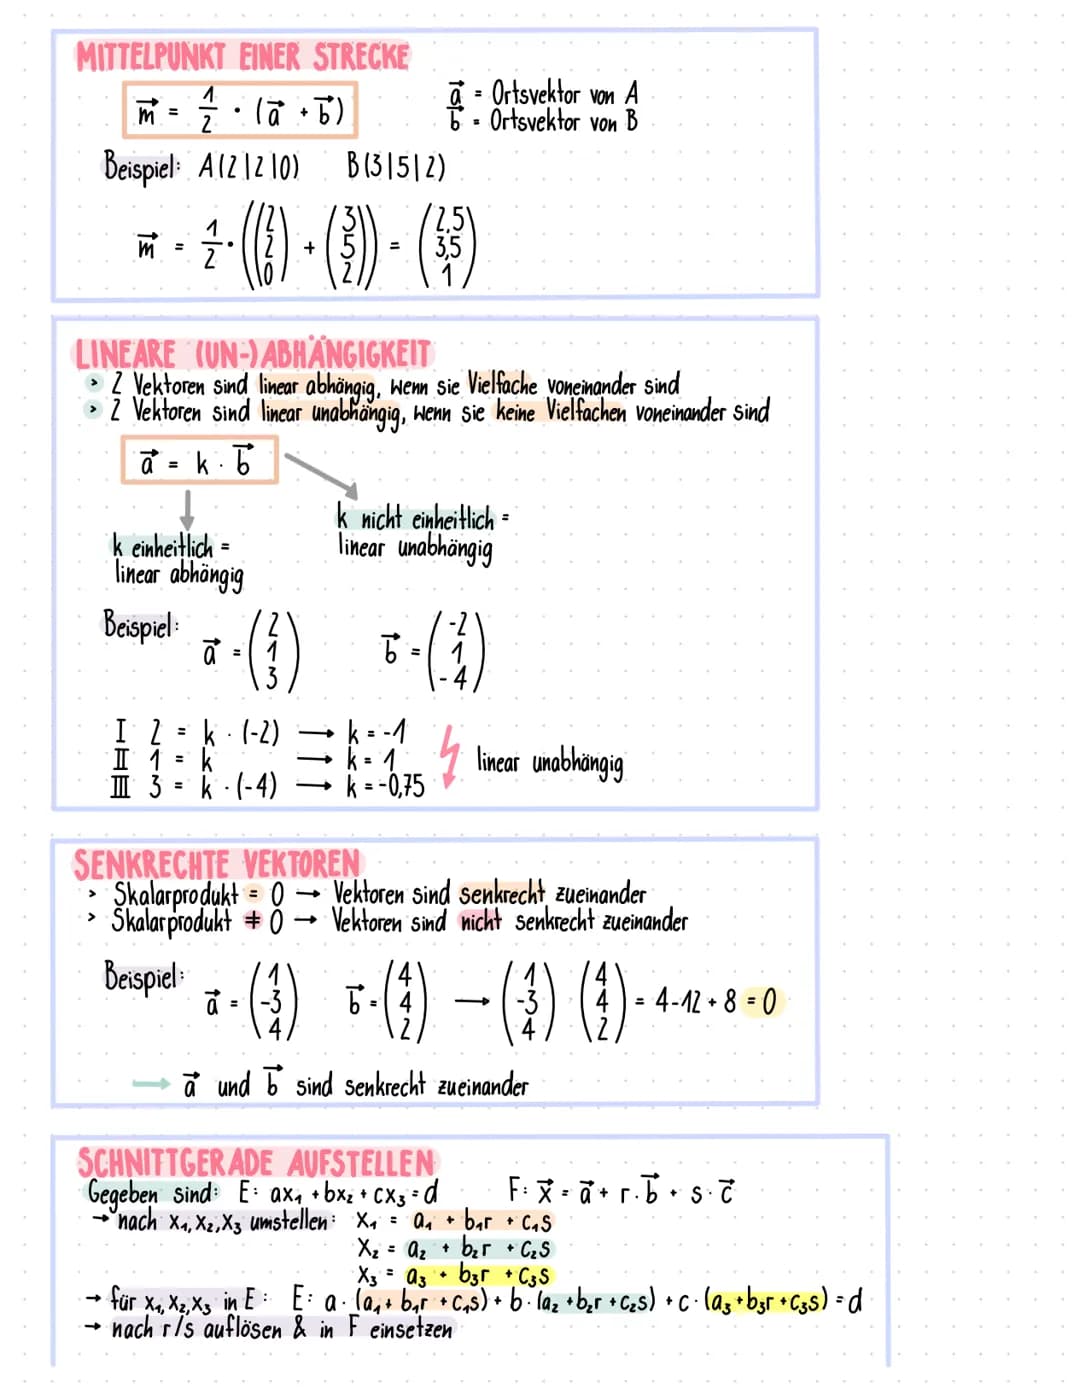 MITTELPUNKT EINER STRECKE
m⃗ = 1/2 · (a⃗ + b⃗)
a⃗ = Ortsvektor von A
b⃗ = Ortsvektor von B
Beispiel: A(2|2|0) B(3|5|2)
m⃗ = 1/2 · ((2 2 0) + (3 5 2)) = (2,5 3,5 1)
LINEARE (UN-)ABHÄNGIGKEIT
> 2 Vektoren sind linear abhängig, wenn sie Vielfache voneinander sind
> 2 Vektoren sind linear unabhängig, wenn sie keine Vielfachen voneinander sind
a⃗ = k · b⃗
k nicht einheitlich =
linear unabhängig
k einheitlich =
linear abhängig
Beispiel: a⃗ = (2 1 3) b⃗ = (-2 1 -4)
I 2 = k · (-2) → k = -1
II 1 = k → k = 1
III 3 = k · (-4) → k = -0,75
linear unabhängig
SENKRECHTE VEKTOREN
> Skalarprodukt = 0 → Vektoren sind senkrecht zueinander
> Skalarprodukt ≠ 0 → Vektoren sind nicht senkrecht zueinander
Beispiel: a⃗ = (1 -3 4) b⃗ = (4 4 2) → (1 -3 4) · (4 4 2) = 4-12+8 = 0
→ a⃗ und b⃗ sind senkrecht zueinander
SCHNITTGERADE AUFSTELLEN
Gegeben sind: E: ax₁ + bx₂ + cx₃ = d F: x⃗ = a⃗ + r·b⃗ + s·c⃗
→ nach x₁, x₂, x₃ umstellen: x₁ = a₁ + b₁r + c₁s
x₂ = a₂ + b₂r + c₂s
x₃ = a₃ + b₃r + c₃s
→ für x₁, x₂, x₃ in E: E: a · (a₁ + b₁r + c₁s) + b · (a₂ + b₂r + c₂s) + c · (a₃ + b₃r + c₃s) = d
→ nach r/s auflösen & in F einsetzen